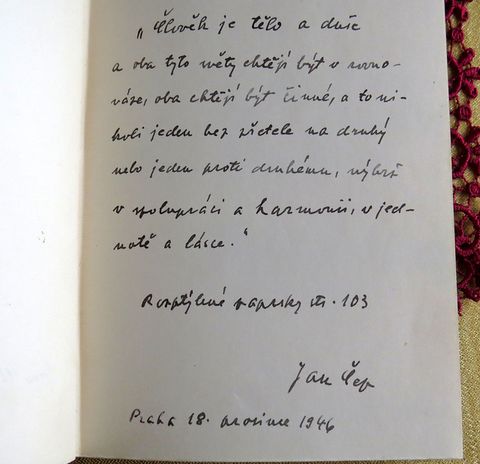 „Člověk je tělo a duše
a oba tyto světy chtějí být v rovno-
váze, oba chtějí být činné, a to ni-
koli jeden bez zřetele na druhý
nebo jeden proti druhému, nýbrž
v spolupráci a harmonii, v jed-
notě a lásce."
Rozptýlené paprsky str. 103
Jan Čep
Praha 18. prosince 1946